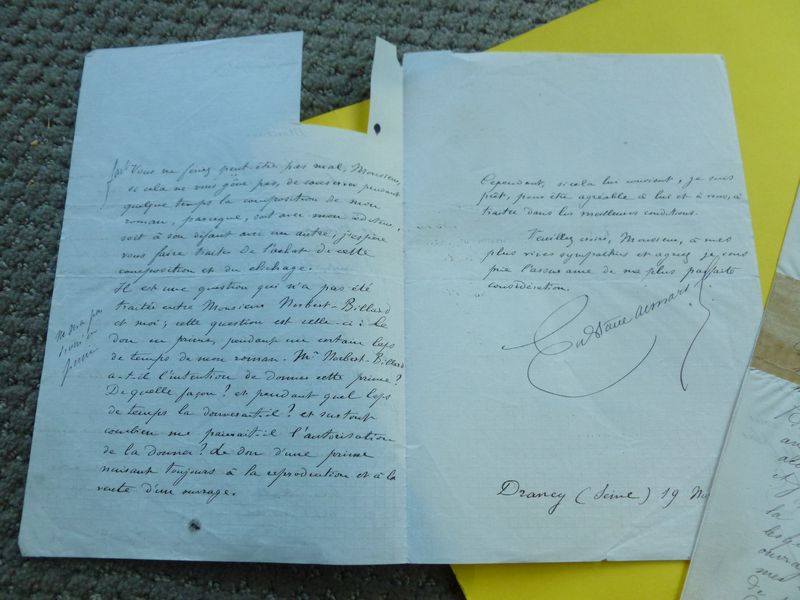 fait Vous ne ferez peut être pas mal, Monsieur,
si cela ne vous gêne pas, de conserver pendant
quelque temps la composition de mon
roman, parceque, soit avec mon éditeur,
soit à son défaut avec un autre, j'espère
vous faire traiter de l'achat de cette
composition et du clichage.
Il est une question qui n'a pas été
traitée entre Monsieur Norbert-Billard
et moi; cette question est celle-ci: Le
don en prime, pendant un certain laps
de temps de mon roman. Mr Norbert-Billard
a-t-il l'intention de donner cette prime?
De quelle façon? et pendant quel laps
de temps la donnerait-il? et surtout
combien me paierait-il l'autorisation
de la donner? Le don d'une prime
nuisant toujours à la reproduction et à la
vente d'un ouvrage.
ne sera pas
donné en
prime
Cependant, si cela lui convient, je suis
prêt, pour être agréable à lui et à vous, à
traiter dans les meilleures conditions.
Veuillez croire, Monsieur, à mes
plus vives sympathies et agréez je vous
prie l'assurance de ma plus parfaite
considération.
Gustave Aimard
Drancy (Seine) 19
la
ouvrag
mes
de